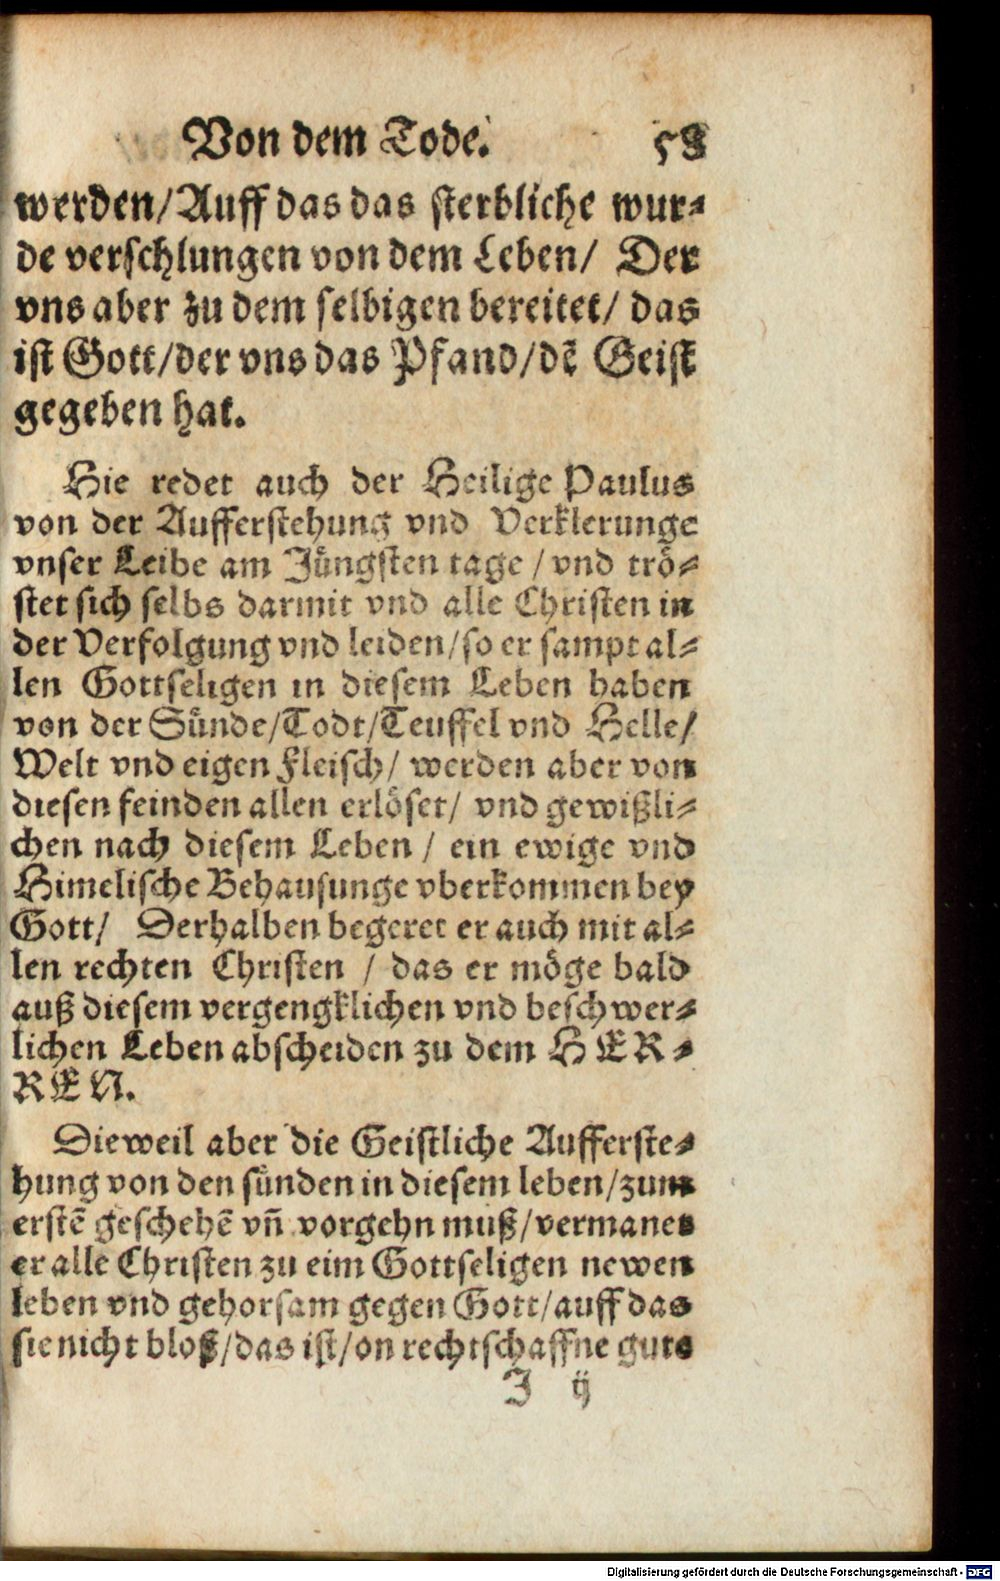 Von dem Tode. 58
werden/Auff das das sterbliche wur⸗
de verschlungen von dem Leben/ Der
vns aber zu dem selbigen bereitet/ das
ist Gott/der vns das Pfand/dē Geist
gegeben hat.
Hie redet auch der Heilige Paulus
von der Aufferstehung vnd Verklerunge
vnser Leibe am Jüngsten tage / vnd trö⸗
stet sich selbs darmit vnd alle Christen in
der Verfolgung vnd leiden/so er sampt al⸗
len Gottseligen in diesem Leben haben
von der Sünde/Todt/Teuffel vnd Helle/
Welt vnd eigen Fleisch/ werden aber von
diesen feinden allen erlöset/ vnd gewißli⸗
chen nach diesem Leben / ein ewige vnd
Himelische Behausunge vberkommen bey
Gott/ Derhalben begeret er auch mit al⸗
len rechten Christen / das er möge bald
auß diesem vergengklichen vnd beschwer⸗
lichen Leben abscheiden zu dem HER⸗
REN.
Dieweil aber die Geistliche Aufferste⸗
hung von den sünden in diesem leben/zum
erstē geschehē vñ vorgehn muß/vermanet
er alle Christen zu eim Gottseligen newen
leben vnd gehorsam gegen Gott/auff das
sie nicht bloß/das ist/on rechtschaffne gute
J ij
Digitalisierung gefördert durch die Deutsche Forschungsgemeinschaft - DFG